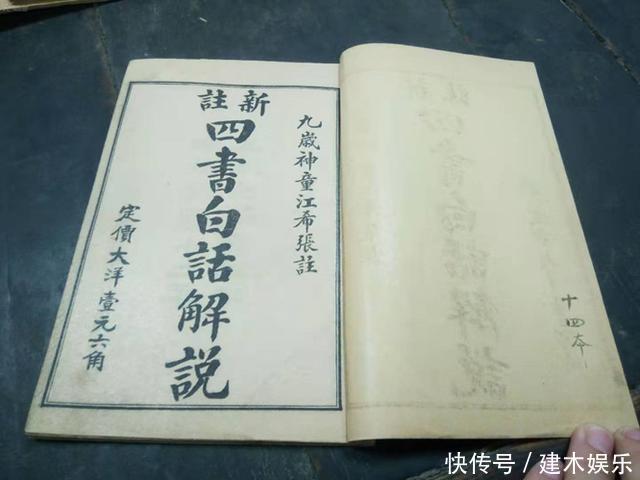 九歲神童江希張註
新註
四書白話解說
定價大洋壹元六角
十四本
快传号/建木娱乐